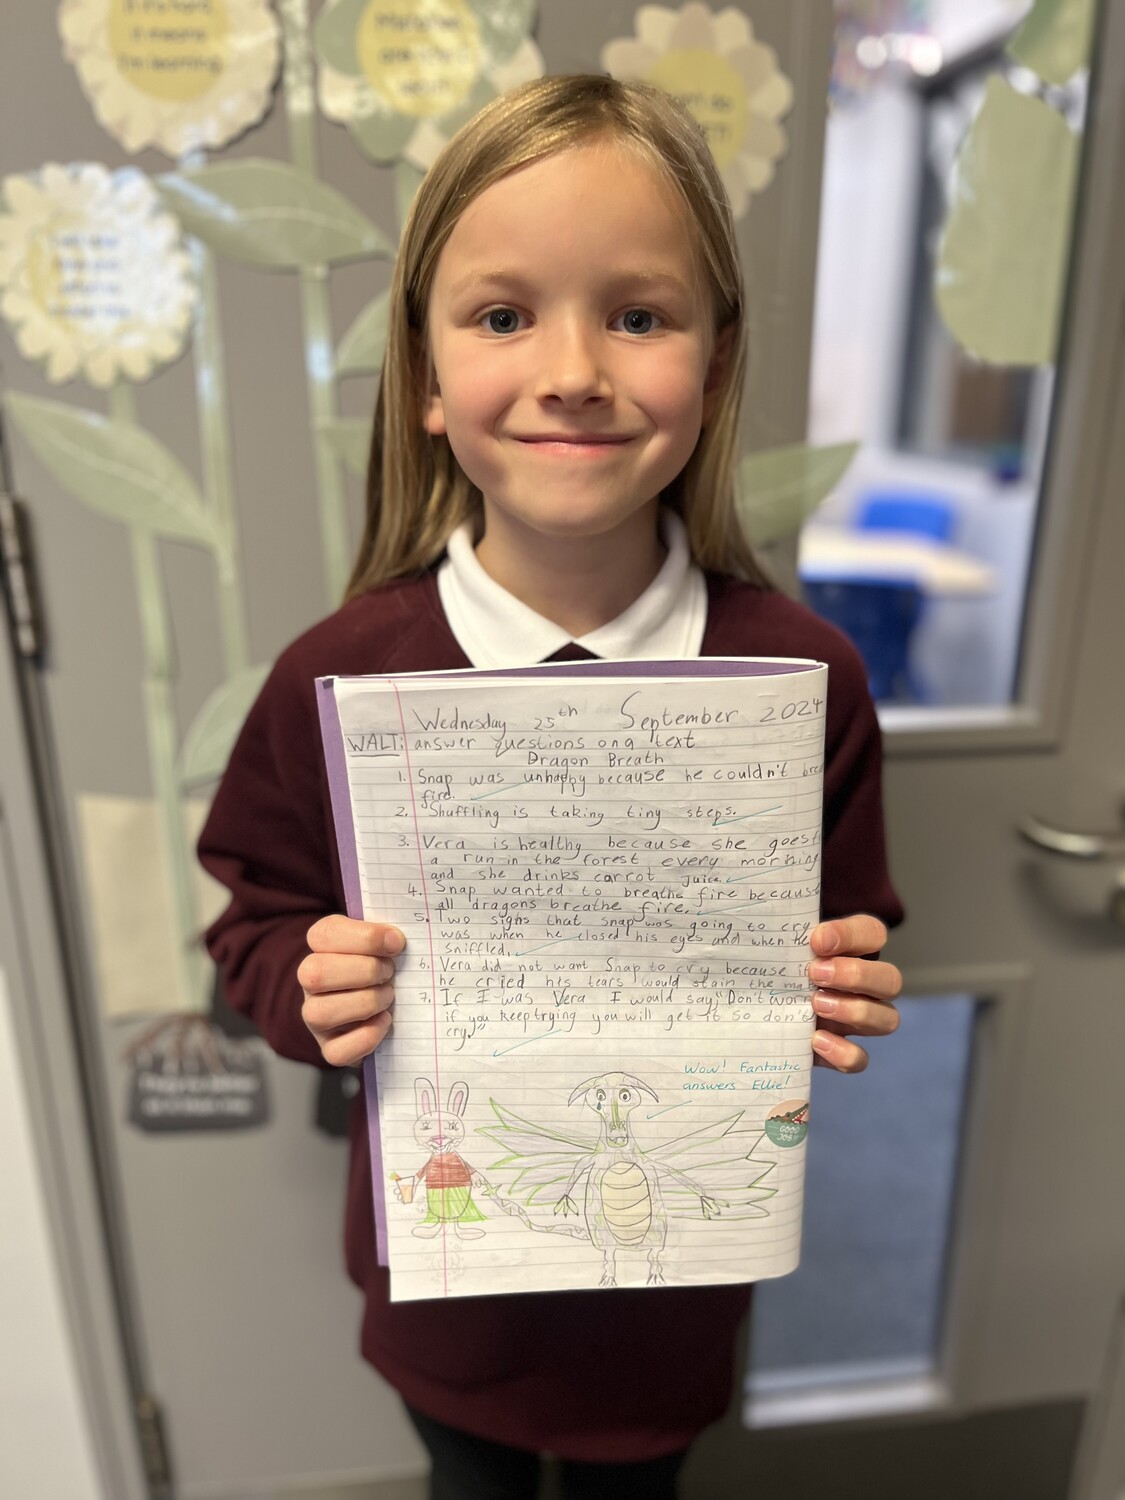 If it's hard,
it means
I'm learning
Mistakes
Wednesday 25th September 2024
WALT: answer questions on a text
Dragon Breath
1. Snap was unhappy because he couldn't
fire.
2. Shuffling is taking tiny steps.
3. Vera is healthy because she goes
a run in the forest every morning
and she drinks carrot juice.
4. Snap wanted to breathe fire because
all dragons breathe fire.
5. Two signs that snap was going to cry
was when he closed his eyes and when he
sniffled.
6. Vera did not want Snap to cry because if
he cried his tears would stain the
7. If I was Vera I would say "Don't
if you keep trying you will get it so don't
cry."
Wow! Fantastic
answers Ellie!
GOOD
JOB!